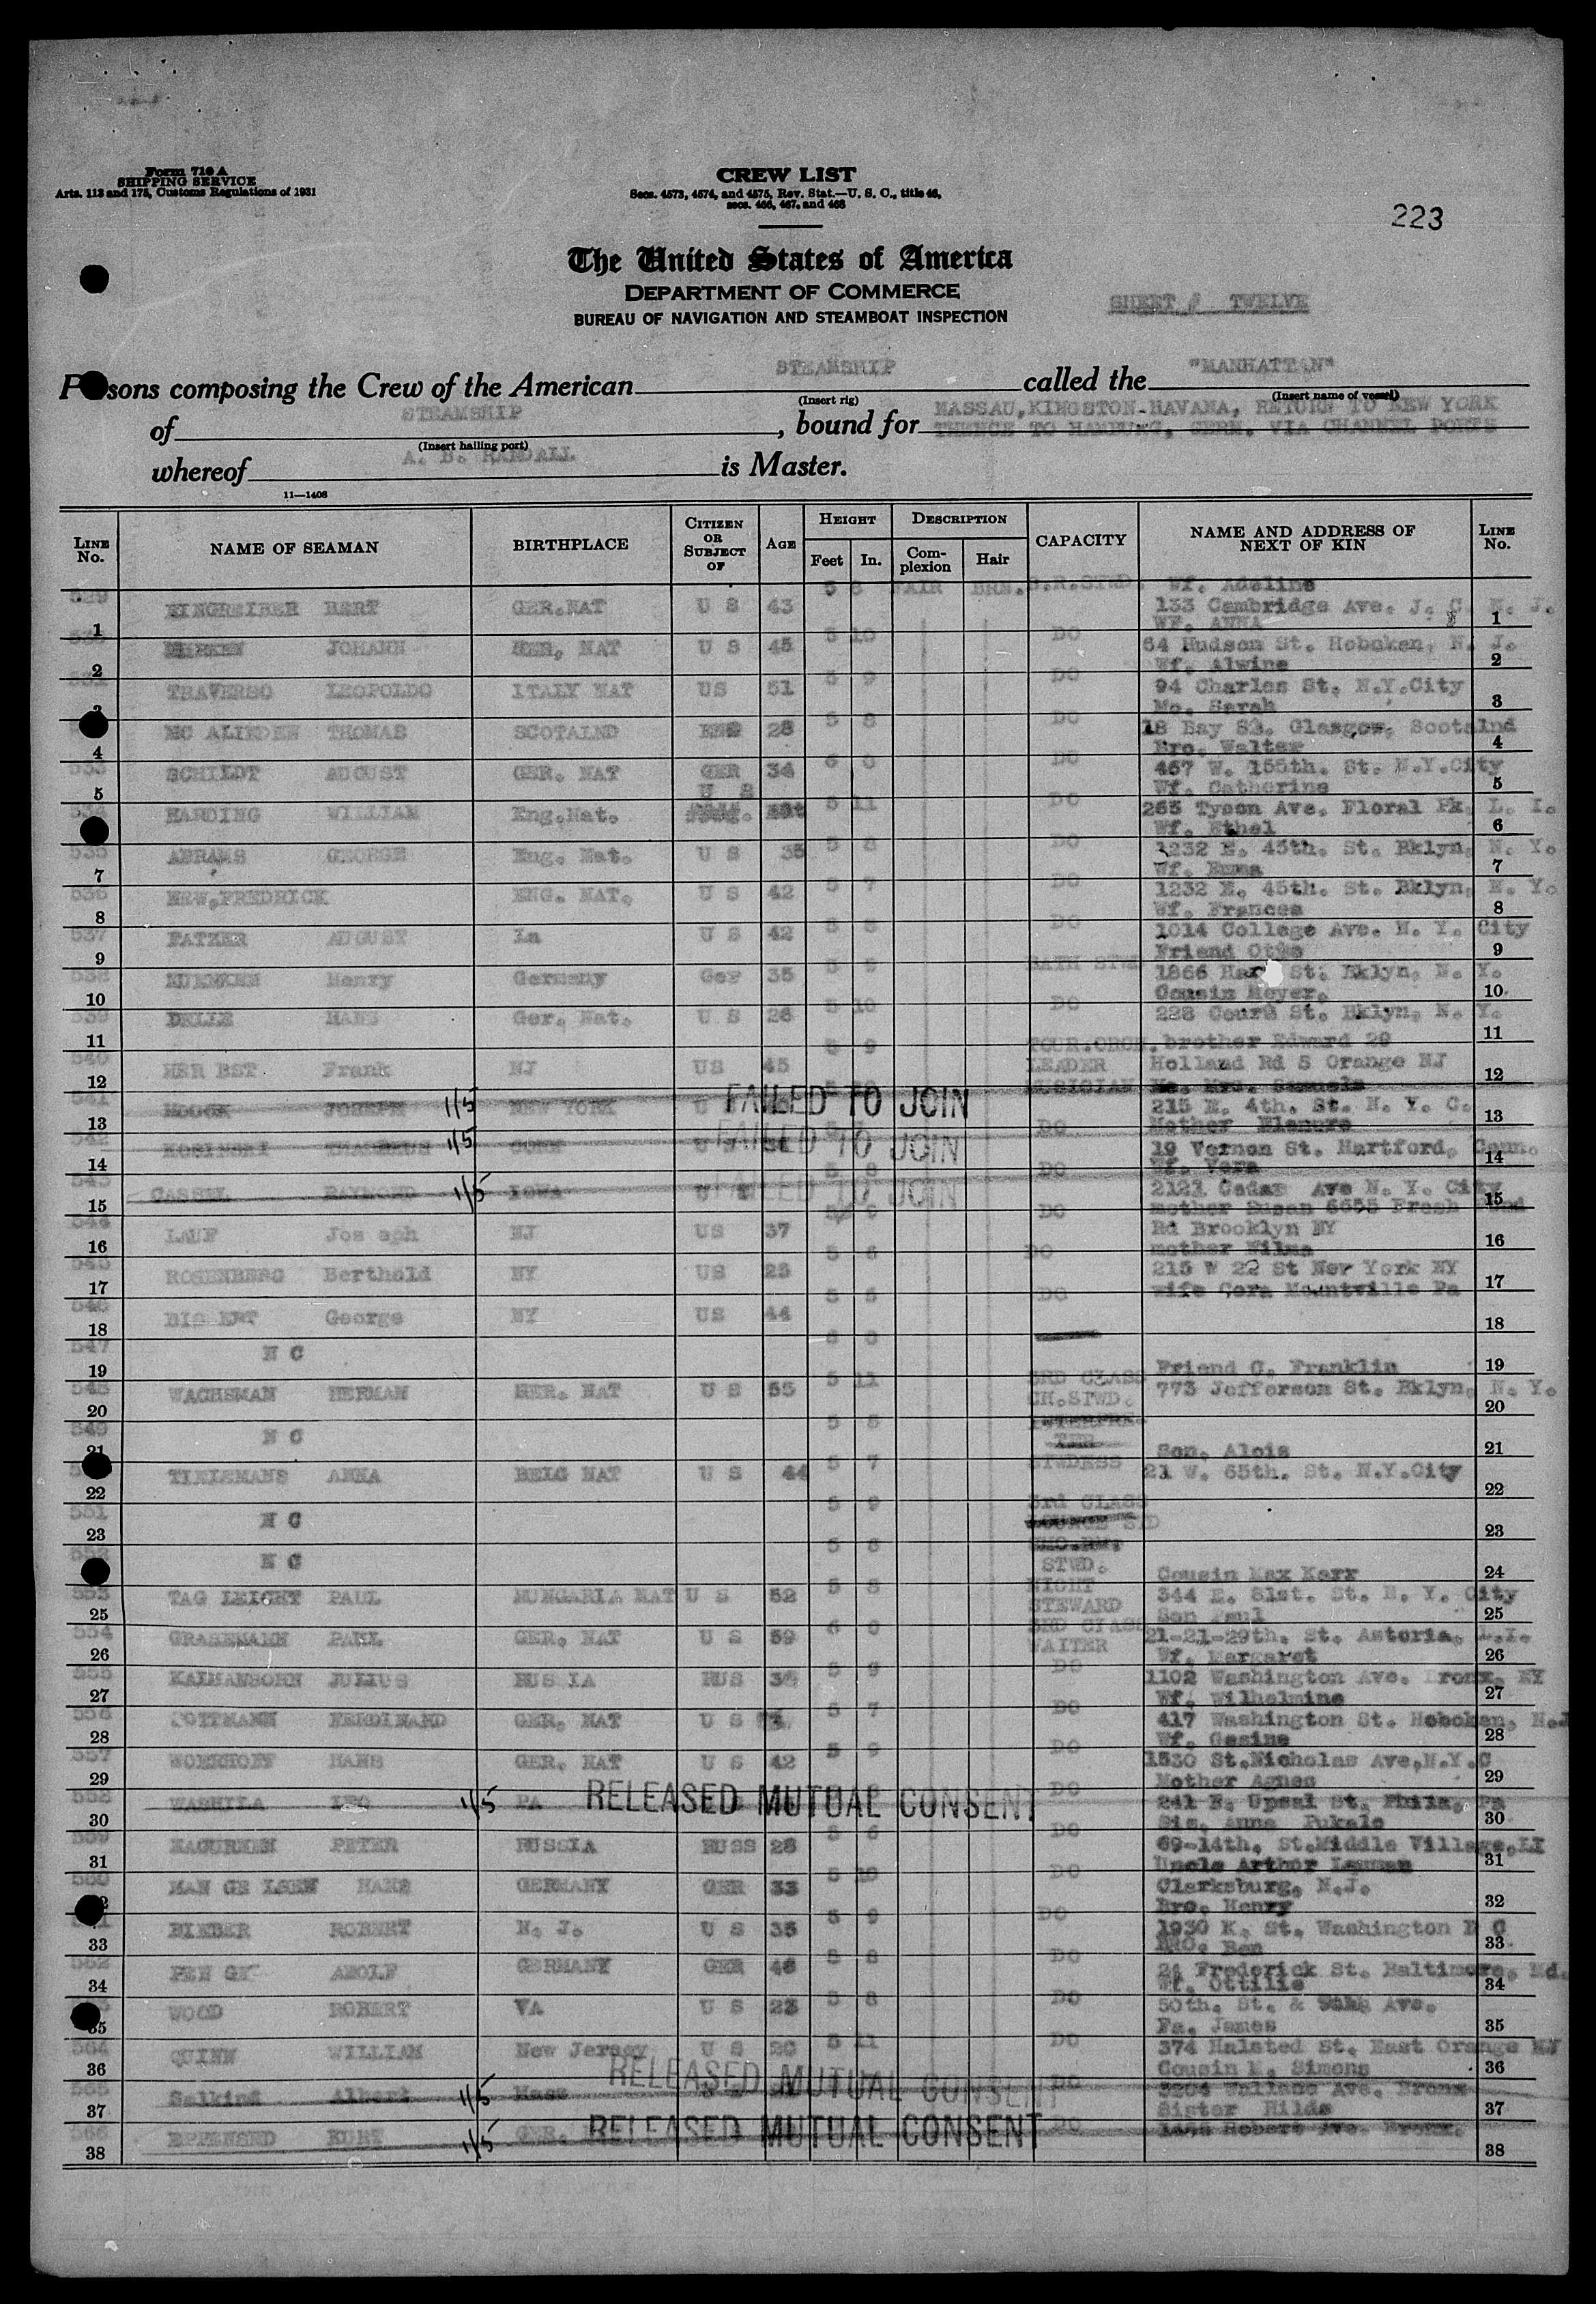 Form 710 A
SHIPPING SERVICE
Arts. 113 and 175, Customs Regulations of 1931
CREW LIST
Secs. 4573, 4574, and 4575, Rev. Stat.—U. S. C., title 46,
secs. 466, 467, and 468
223
The United States of America
DEPARTMENT OF COMMERCE
BUREAU OF NAVIGATION AND STEAMBOAT INSPECTION
SHEET # TWELVE
Persons composing the Crew of the American STEAMSHIP called the "MANHATTAN"
(Insert rig) (Insert name of vessel)
of STEAMSHIP, bound for NASSAU, KINGSTON-HAVANA, RETURN TO NEW YORK
(Insert hailing port) THENCE TO HAMBURG, GERM. VIA CHANNEL PORTS
whereof A. B. RANDALL is Master.
11—1408
LINE No. NAME OF SEAMAN BIRTHPLACE CITIZEN OR SUBJECT OF AGE HEIGHT Feet In. DESCRIPTION Complexion Hair CAPACITY NAME AND ADDRESS OF NEXT OF KIN LINE No.
529 BERT GER.NAT U S 43 5 8 FAIR BRN. S.R.STWD. Wf. Adeline
1 133 Cambridge Ave. J. C. N. J. 1
JOHANN GER. NAT U S 45 5 10 DO Wf. ANNA
2 64 Hudson St. Hoboken, N. J. 2
531 TRAVERSO LEOPOLDO ITALY NAT US 51 5 9 DO Wf. Alwine
94 Charles St. N.Y.City 3
THOMAS SCOTALND 28 5 8 DO Mo. Sarah
4 18 Bay St. Glasgow, Scotalnd 4
533 SCHILDT AUGUST GER. NAT GER 34 6 0 DO Bro. Walter
5 467 W. 155th. St. N.Y.City 5
HARDING WILLIAM Eng.Nat. U S 5 11 DO Wf. Catherine
265 Tyson Ave. Floral Pk. L. I. 6
535 ABRAMS GEORGE Eng. Nat. U S 35 5 8 DO Wf. Ethel
7 1232 E. 45th. St. Bklyn, N. Y. 7
536 NEW,FREDRICK ENG. NAT. U S 42 5 7 DO Wf. Emma
8 1232 E. 45th. St. Bklyn, N. Y. 8
537 FATZER AUGUST La U S 42 5 8 DO Wf. Frances
9 1014 College Ave. N. Y. City 9
538 Henry Germany Ger 35 5 9 BATH STWD Friend Otto
10 1866 St. Bklyn, N. Y. 10
539 HANS Ger. Nat. U S 26 5 10 DO Cousin Meyer.
11 228 Court St. Bklyn, N. Y. 11
540 HER BST Frank NJ US 45 5 9 TOUR.ORCH. LEADER brother Edward 29
12 Holland Rd S Orange NJ 12
541 JOSEPH 1/5 NEW YORK FAILED TO JOIN MUSICIAN
13 215 E. 4th. St. N. Y. C. 13
542 1/5 CONN FAILED TO JOIN DO Mother
14 19 Vernon St. Hartford, Conn. 14
543 CASSEL RAYMOND 1/5 IOWA FAILED TO JOIN DO Wf. Vera
15 2121 Cedar Ave N. Y. City 15
544 LAUF Jos eph NJ US 37 DO mother Susan 6655 Fresh Pond
16 Rd Brooklyn NY 16
545 ROSENBERG Berthold NY US 23 5 6 DO mother Wilma
17 215 W 22 St New York NY 17
546 George NY US 44 5 5 DO wife Cora Mountville Pa
18 18
547 N C 6 0
19 19
548 WACHSMAN HERMAN GER. NAT U S 55 5 11 3RD CLASS CH.STWD. Friend C. Franklin
20 773 Jefferson St. Bklyn, N. Y. 20
549 N C 5 8
21 21
TIELEMANS ANNA BELG NAT U S 44 5 7 STWDESS Son. Alois
22 21 W. 65th. St. N.Y.City 22
551 N C 5 9 3rd CLASS
23 23
552 N C 5 8 STWD.
24
553 TAG LEICHT PAUL HUNGARIA NAT U S 52 5 8 NIGHT STEWARD Cousin Max Karr
25 344 E. 81st. St. N. Y. City 25
554 GRASEMANN PAUL GER. NAT U S 59 6 0 3RD CLASS WAITER Son Paul
26 21-21-29th. St. Astoria, L.I. 26
555 KALMANSOHN JULIUS RUSSIA RUS 36 5 9 DO Wf. Margaret
27 1102 Washington Ave. Bronx, NY 27
556 FERDINARD GER. NAT U S 5 7 DO Wf. Wilhelmine
28 417 Washington St. Hoboken, N.J 28
557 HANS GER. NAT U S 42 5 9 DO Wf. Gesine
29 1530 St.Nicholas Ave,N.Y.C 29
558 LEO 1/5 PA RELEASED MUTUAL CONSENT DO Mother Agnes
30 241 E. Upsal St. Phila, Pa 30
559 PETER RUSSIA RUSS 28 5 6 DO Sis. Anna
31 69-14th. St.Middle Village,LI 31
560 HANS GERMANY GER 33 5 10 DO Uncle Arthur
Clarksburg, N.J. 32
BIEBER ROBERT N. J. U S 35 5 9 DO Bro. Henry
33 1930 K. St. Washington D C 33
562 ADOLF GERMANY GER 46 5 8 DO BRO. Ben
34 24 Frederick St. Baltimore, Md. 34
WOOD ROBERT VA U S 23 5 8 DO Wf. Ottilie
35 50th. St. & Ave. 35
564 QUINN WILLIAM New Jersey U S 20 5 11 DO Fa. James
36 374 Halsted St. East Orange NJ 36
565 Albert 1/5 RELEASED MUTUAL CONSENT DO Cousin M. Simons
37 Wallace Ave. Bronx 37
566 KURT 1/5 GER. RELEASED MUTUAL CONSENT DO Sister Hilda
38 Robert Ave. Bronx. 38